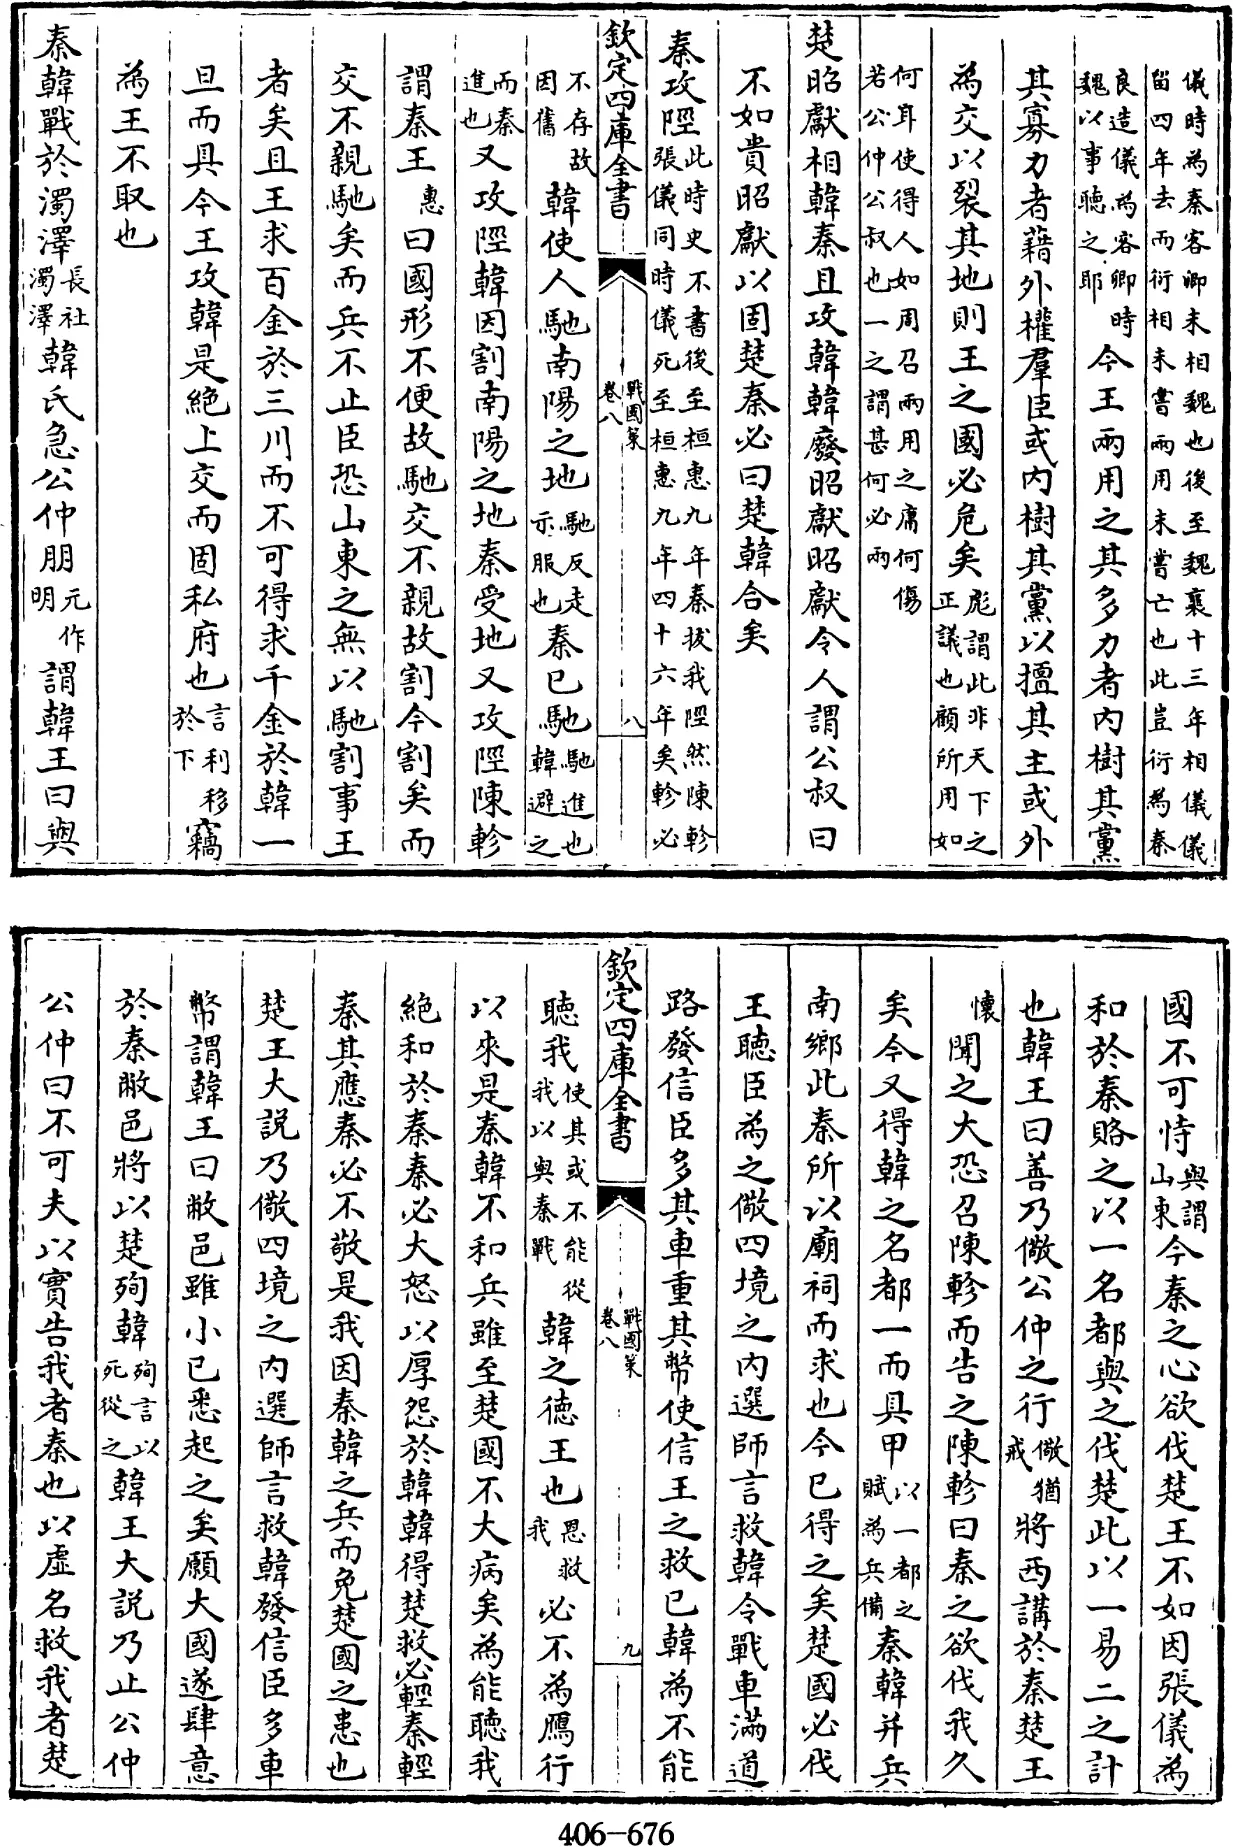 儀時為秦客卿未相魏也後至魏襄十三年相儀儀
留四年去而衍相未嘗兩用未嘗亡也此豈衍為秦
良造儀為客卿時魏以事聽之耶今王兩用之其多力者內樹其黨
其寡力者藉外權羣臣或內樹其黨以擅其主或外
為交以裂其地則王之國必危矣彪謂此非天下之正議也顧所用如
何耳使得人如周召兩用之庸何傷
若公仲公叔也一之謂甚何必兩
楚昭獻相韓秦且攻韓韓廢昭獻昭獻令人謂公叔曰
不如貴昭獻以固楚秦必曰楚韓合矣
秦攻陘此時史不書後至桓惠九年秦拔我陘然陳軫張儀同時儀死至桓惠九年四十六年矣軫必
欽定四庫全書
戰國策
卷八
八
不存故因舊韓使人馳南陽之地馳反走示服也秦已馳馳進也韓避之
而秦進也又攻陘韓因割南陽之地秦受地又攻陘陳軫
謂秦王惠曰國形不便故馳交不親故割今割矣而
交不親馳矣而兵不止臣恐山東之無以馳割事王
者矣且王求百金於三川而不可得求千金於韓一
旦而具今王攻韓是絕上交而固私府也言利移於下竊
為王不取也
秦韓戰於濁澤長社濁澤韓氏急公仲朋元作明謂韓王曰與
國不可恃與謂山東今秦之心欲伐楚王不如因張儀為
和於秦賂之以一名都與之伐楚此以一易二之計
也韓王曰善乃儆公仲之行儆猶戒將西講於秦楚王
懷聞之大恐召陳軫而告之陳軫曰秦之欲伐我久
矣今又得韓之名都一而具甲以一都之賦為兵備秦韓并兵
南鄉此秦所以廟祠而求也今已得之矣楚國必伐
王聽臣為之儆四境之內選師言救韓令戰車滿道
路發信臣多其車重其幣使信王之救已韓為不能
欽定四庫全書
戰國策
卷八
九
聽我使其或不能從我以與秦戰韓之德王也恩救我必不為鴈行
以來是秦韓不和兵雖至楚國不大病矣為能聽我
絕和於秦秦必大怒以厚怨於韓韓得楚救必輕秦輕
秦其應秦必不敬是我因秦韓之兵而免楚國之患也
楚王大說乃儆四境之內選師言救韓發信臣多車
幣謂韓王曰敝邑雖小已悉起之矣願大國遂肆意
於秦敝邑將以楚殉韓殉言以死從之韓王大說乃止公仲
公仲曰不可夫以實告我者秦也以虛名救我者楚
406-676